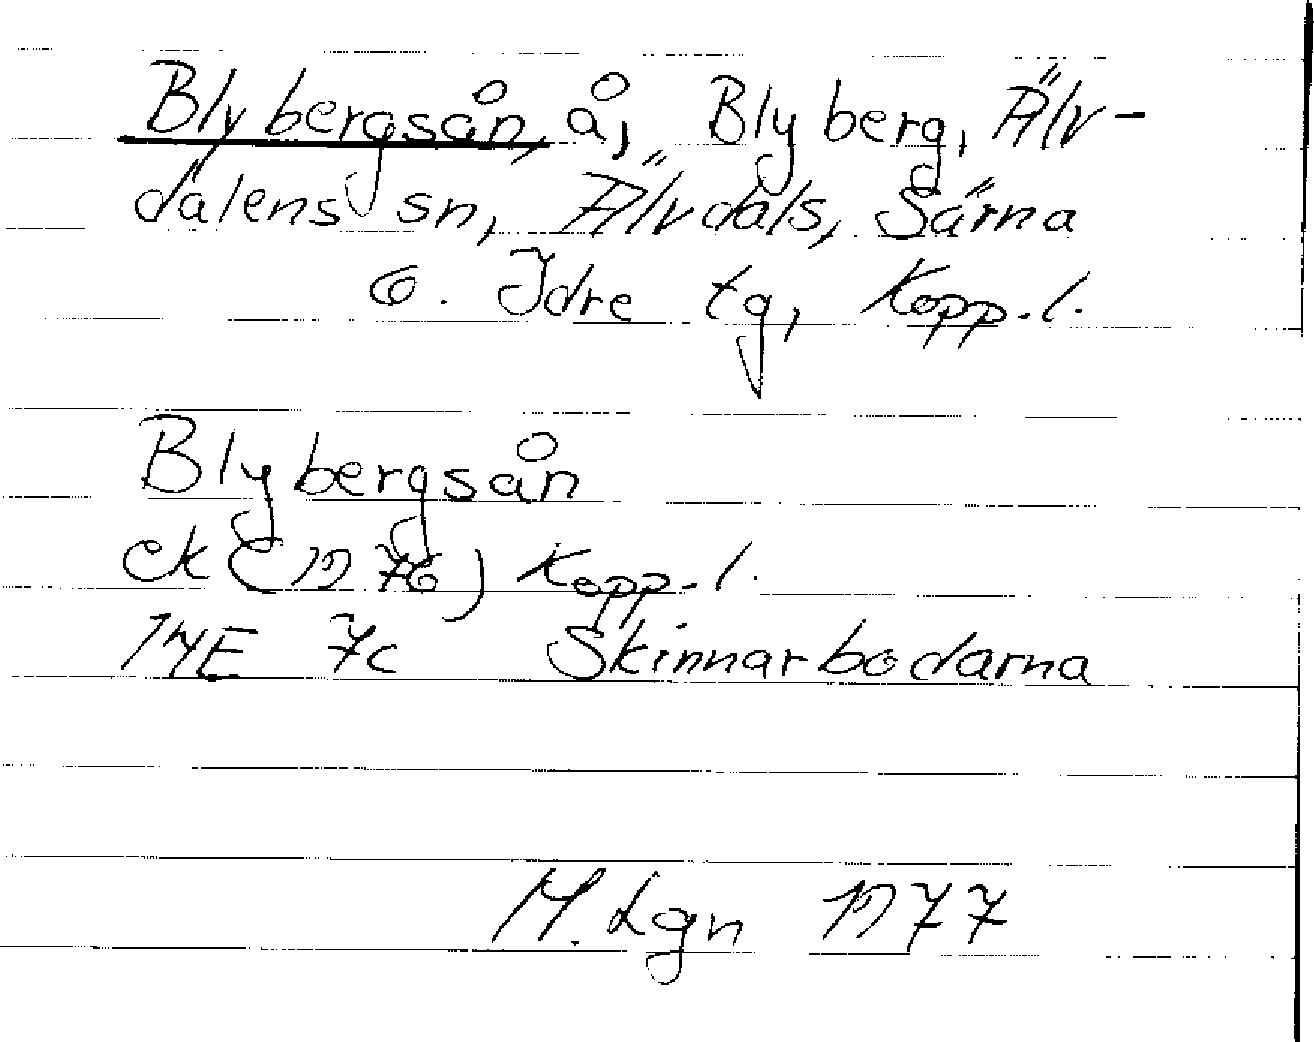 Blybergsån, å, Blyberg, Älv-
dalens sn, Älvdals, Särna
o. Idre tg, Kopp.l.
Blybergsån
ek (1976) Kopp.l.
14E 7c Skinnarbodarna
M. Lgn 1977